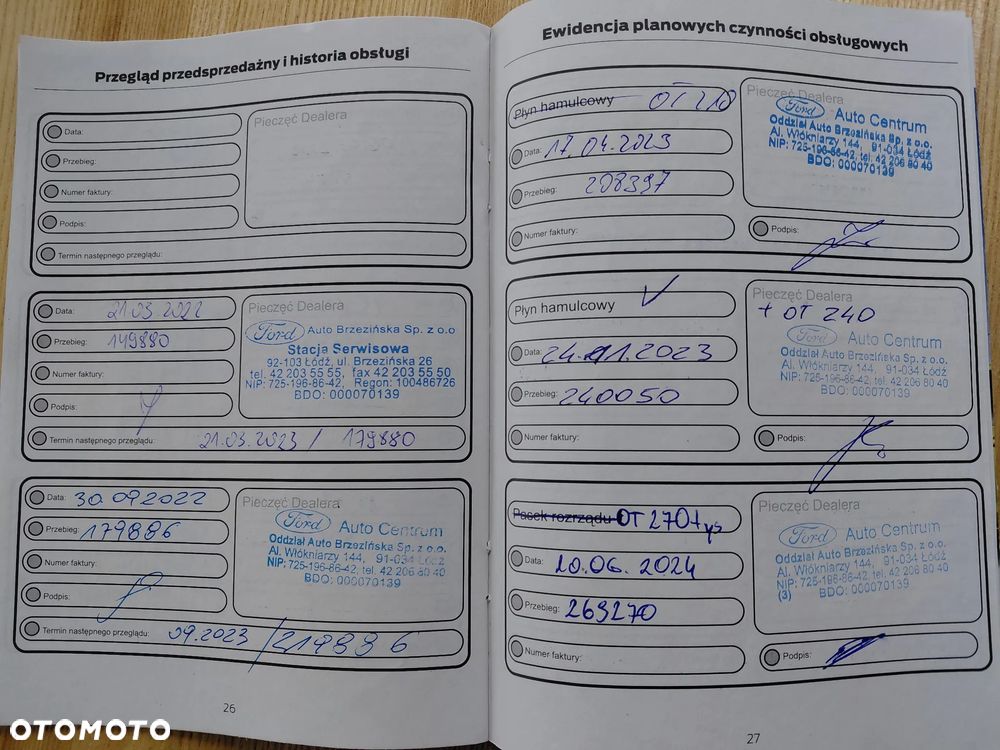 Przegląd przedsprzedażny i historia obsługi
Data:
Przebieg:
Numer faktury:
Podpis:
Termin następnego przeglądu:
Pieczęć Dealera
Data: 21.03.2022
Przebieg: 149880
Numer faktury:
Podpis:
Termin następnego przeglądu: 21.03.2023 / 179880
Pieczęć Dealera
Ford Auto Brzezińska Sp. z o.o
Stacja Serwisowa
92-103 Łódź, ul. Brzezińska 26
tel. 42 203 55 55, fax 42 203 55 50
NIP: 725-196-86-42, Regon: 100486726
BDO: 000070139
Data: 30.09.2022
Przebieg: 179886
Numer faktury:
Podpis:
Termin następnego przeglądu: 09.2023 / 219886
Pieczęć Dealera
Ford Auto Centrum
Oddział Auto Brzezińska Sp. z o.o.
Al. Włókniarzy 144, 91-034 Łódź
NIP: 725-196-86-42, tel. 42 206 80 40
BDO: 000070139
26
Ewidencja planowych czynności obsługowych
Płyn hamulcowy OT 210
Data: 17.04.2023
Przebieg: 208397
Numer faktury:
Pieczęć Dealera
Ford Auto Centrum
Oddział Auto Brzezińska Sp. z o.o.
Al. Włókniarzy 144, 91-034 Łódź
NIP: 725-196-86-42, tel. 42 206 80 40
BDO: 000070139
Podpis:
Płyn hamulcowy
Data: 24.11.2023
Przebieg: 240050
Numer faktury:
Pieczęć Dealera
+ OT 240
Ford Auto Centrum
Oddział Auto Brzezińska Sp. z o.o.
Al. Włókniarzy 144, 91-034 Łódź
NIP: 725-196-86-42, tel. 42 206 80 40
BDO: 000070139
Podpis:
Pasek rozrządu OT 270 tys
Data: 20.06.2024
Przebieg: 269270
Numer faktury:
Pieczęć Dealera
Ford Auto Centrum
Oddział Auto Brzezińska Sp. z o.o.
Al. Włókniarzy 144, 91-034 Łódź
NIP: 725-196-86-42, tel. 42 206 80 40
(3) BDO: 000070139
Podpis:
27
OTOMOTO